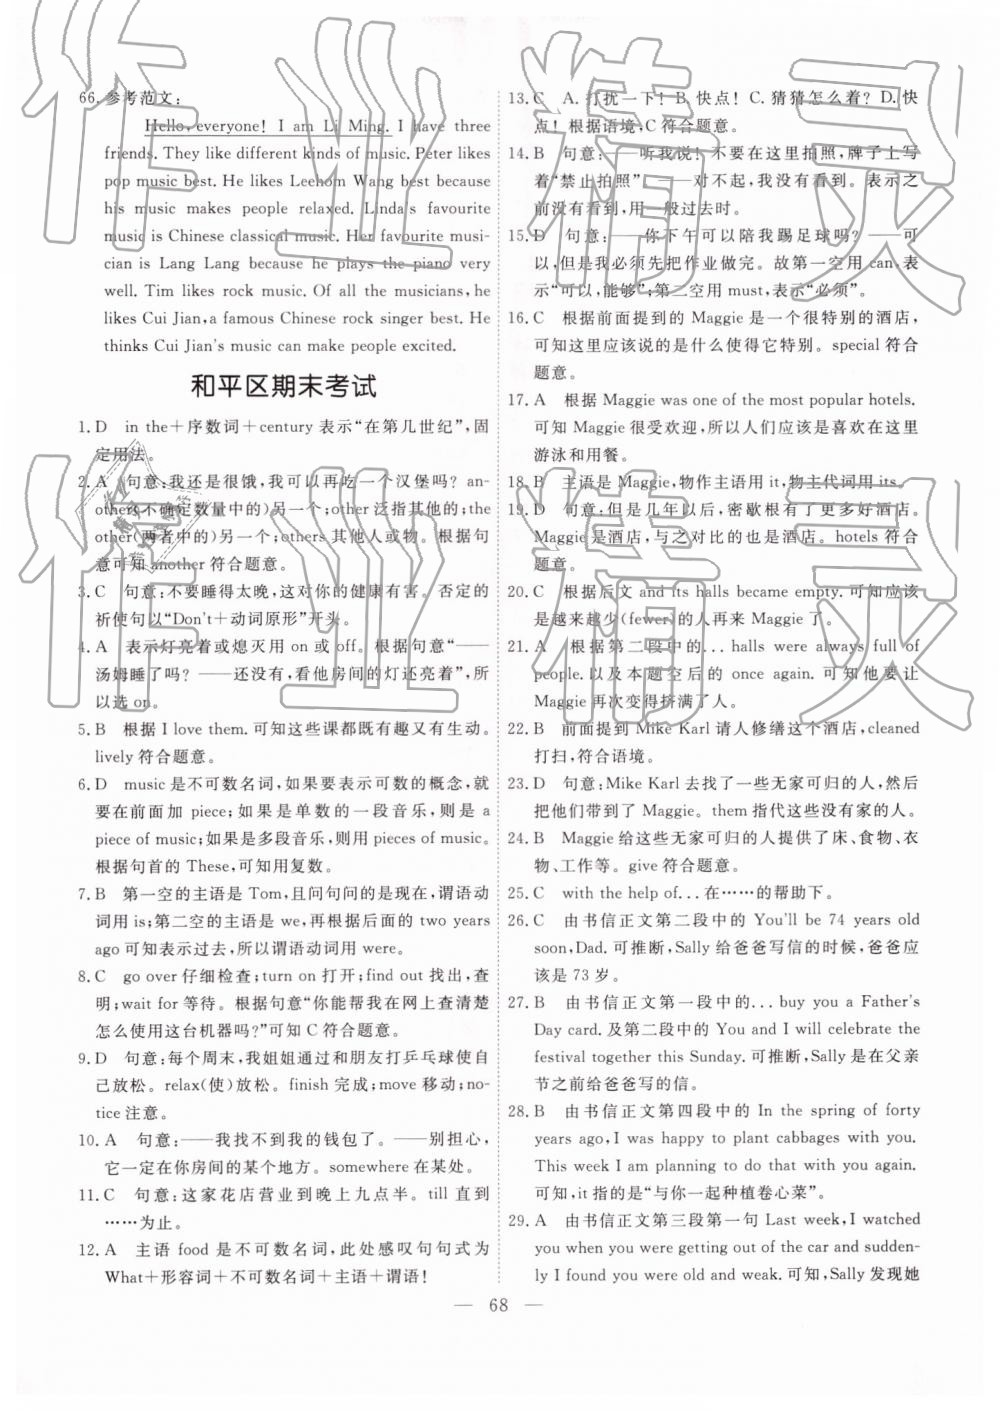 作业精灵
66. 参考范文:
Hello, everyone! I am Li Ming. I have three
friends. They like different kinds of music. Peter likes
pop music best. He likes Leehom Wang best because
his music makes people relaxed. Linda's favourite
music is Chinese classical music. Her favourite musi-
cian is Lang Lang because he plays the piano very
well. Tim likes rock music. Of all the musicians, he
likes Cui Jian, a famous Chinese rock singer best. He
thinks Cui Jian's music can make people excited.
和平区期末考试
1. D in the+序数词+century 表示“在第几世纪”,固
定用法。
2. A 句意:我还是很饿,我可以再吃一个汉堡吗? an-
other(不确定数量中的)另一个;other 泛指其他的;the
other(两者中的)另一个;others 其他人或物。根据句
意可知 another 符合题意。
3. C 句意:不要睡得太晚,这对你的健康有害。否定的
祈使句以“Don't+动词原形”开头。
4. A 表示灯亮着或熄灭用 on 或 off。根据句意“——
汤姆睡了吗? ——还没有,看他房间的灯还亮着”,所
以选 on。
5. B 根据 I love them. 可知这些课都既有趣又有生动。
lively 符合题意。
6. D music 是不可数名词,如果要表示可数的概念,就
要在前面加 piece;如果是单数的一段音乐,则是 a
piece of music;如果是多段音乐,则用 pieces of music。
根据句首的 These,可知用复数。
7. B 第一空的主语是 Tom,且问句问的是现在,谓语动
词用 is;第二空的主语是 we,再根据后面的 two years
ago 可知表示过去,所以谓语动词用 were。
8. C go over 仔细检查;turn on 打开;find out 找出,查
明;wait for 等待。根据句意“你能帮我在网上查清楚
怎么使用这台机器吗?”可知 C 符合题意。
9. D 句意:每个周末,我姐姐通过和朋友打乒乓球使自
己放松。relax(使)放松。finish 完成;move 移动;no-
tice 注意。
10. A 句意:——我找不到我的钱包了。——别担心,
它一定在你房间的某个地方。somewhere 在某处。
11. C 句意:这家花店营业到晚上九点半。till 直到
……为止。
12. A 主语 food 是不可数名词,此处感叹句句式为
What+形容词+不可数名词+主语+谓语!
13. C A. 打扰一下! B. 快点! C. 猜猜怎么着? D. 快
点! 根据语境,C 符合题意。
14. B 句意:——听我说! 不要在这里拍照,牌子上写
着“禁止拍照” ——对不起,我没有看到。表示之
前没有看到,用一般过去时。
15. D 句意:——你下午可以陪我踢足球吗? ——可
以,但是我必须先把作业做完。故第一空用 can,表
示“可以,能够”;第二空用 must,表示“必须”。
16. C 根据前面提到的 Maggie 是一个很特别的酒店,
可知这里应该说的是什么使得它特别。special 符合
题意。
17. A 根据 Maggie was one of the most popular hotels.
可知 Maggie 很受欢迎,所以人们应该是喜欢在这里
游泳和用餐。
18. B 主语是 Maggie,物作主语用 it,物主代词用 its。
19. D 句意:但是几年以后,密歇根有了更多好酒店。
Maggie 是酒店,与之对比的也是酒店。hotels 符合
题意。
20. C 根据后文 and its halls became empty. 可知应该
是越来越少(fewer)的人再来 Maggie 了。
21. A 根据第二段中的... halls were always full of
people. 以及本题空后的 once again. 可知他要让
Maggie 再次变得挤满了人。
22. B 前面提到 Mike Karl 请人修缮这个酒店,cleaned
打扫,符合语境。
23. D 句意:Mike Karl 去找了一些无家可归的人,然后
把他们带到了 Maggie。them 指代这些没有家的人。
24. B Maggie 给这些无家可归的人提供了床、食物、衣
物、工作等。give 符合题意。
25. C with the help of... 在……的帮助下。
26. C 由书信正文第二段中的 You'll be 74 years old
soon, Dad. 可推断,Sally 给爸爸写信的时候,爸爸应
该是 73 岁。
27. B 由书信正文第一段中的... buy you a Father's
Day card. 及第二段中的 You and I will celebrate the
festival together this Sunday. 可推断,Sally 是在父亲
节之前给爸爸写的信。
28. B 由书信正文第四段中的 In the spring of forty
years ago, I was happy to plant cabbages with you.
This week I am planning to do that with you again.
可知,it 指的是“与你一起种植卷心菜”。
29. A 由书信正文第三段第一句 Last week, I watched
you when you were getting out of the car and sudden-
ly I found you were old and weak. 可知,Sally 发现她
— 68 —
作业精灵